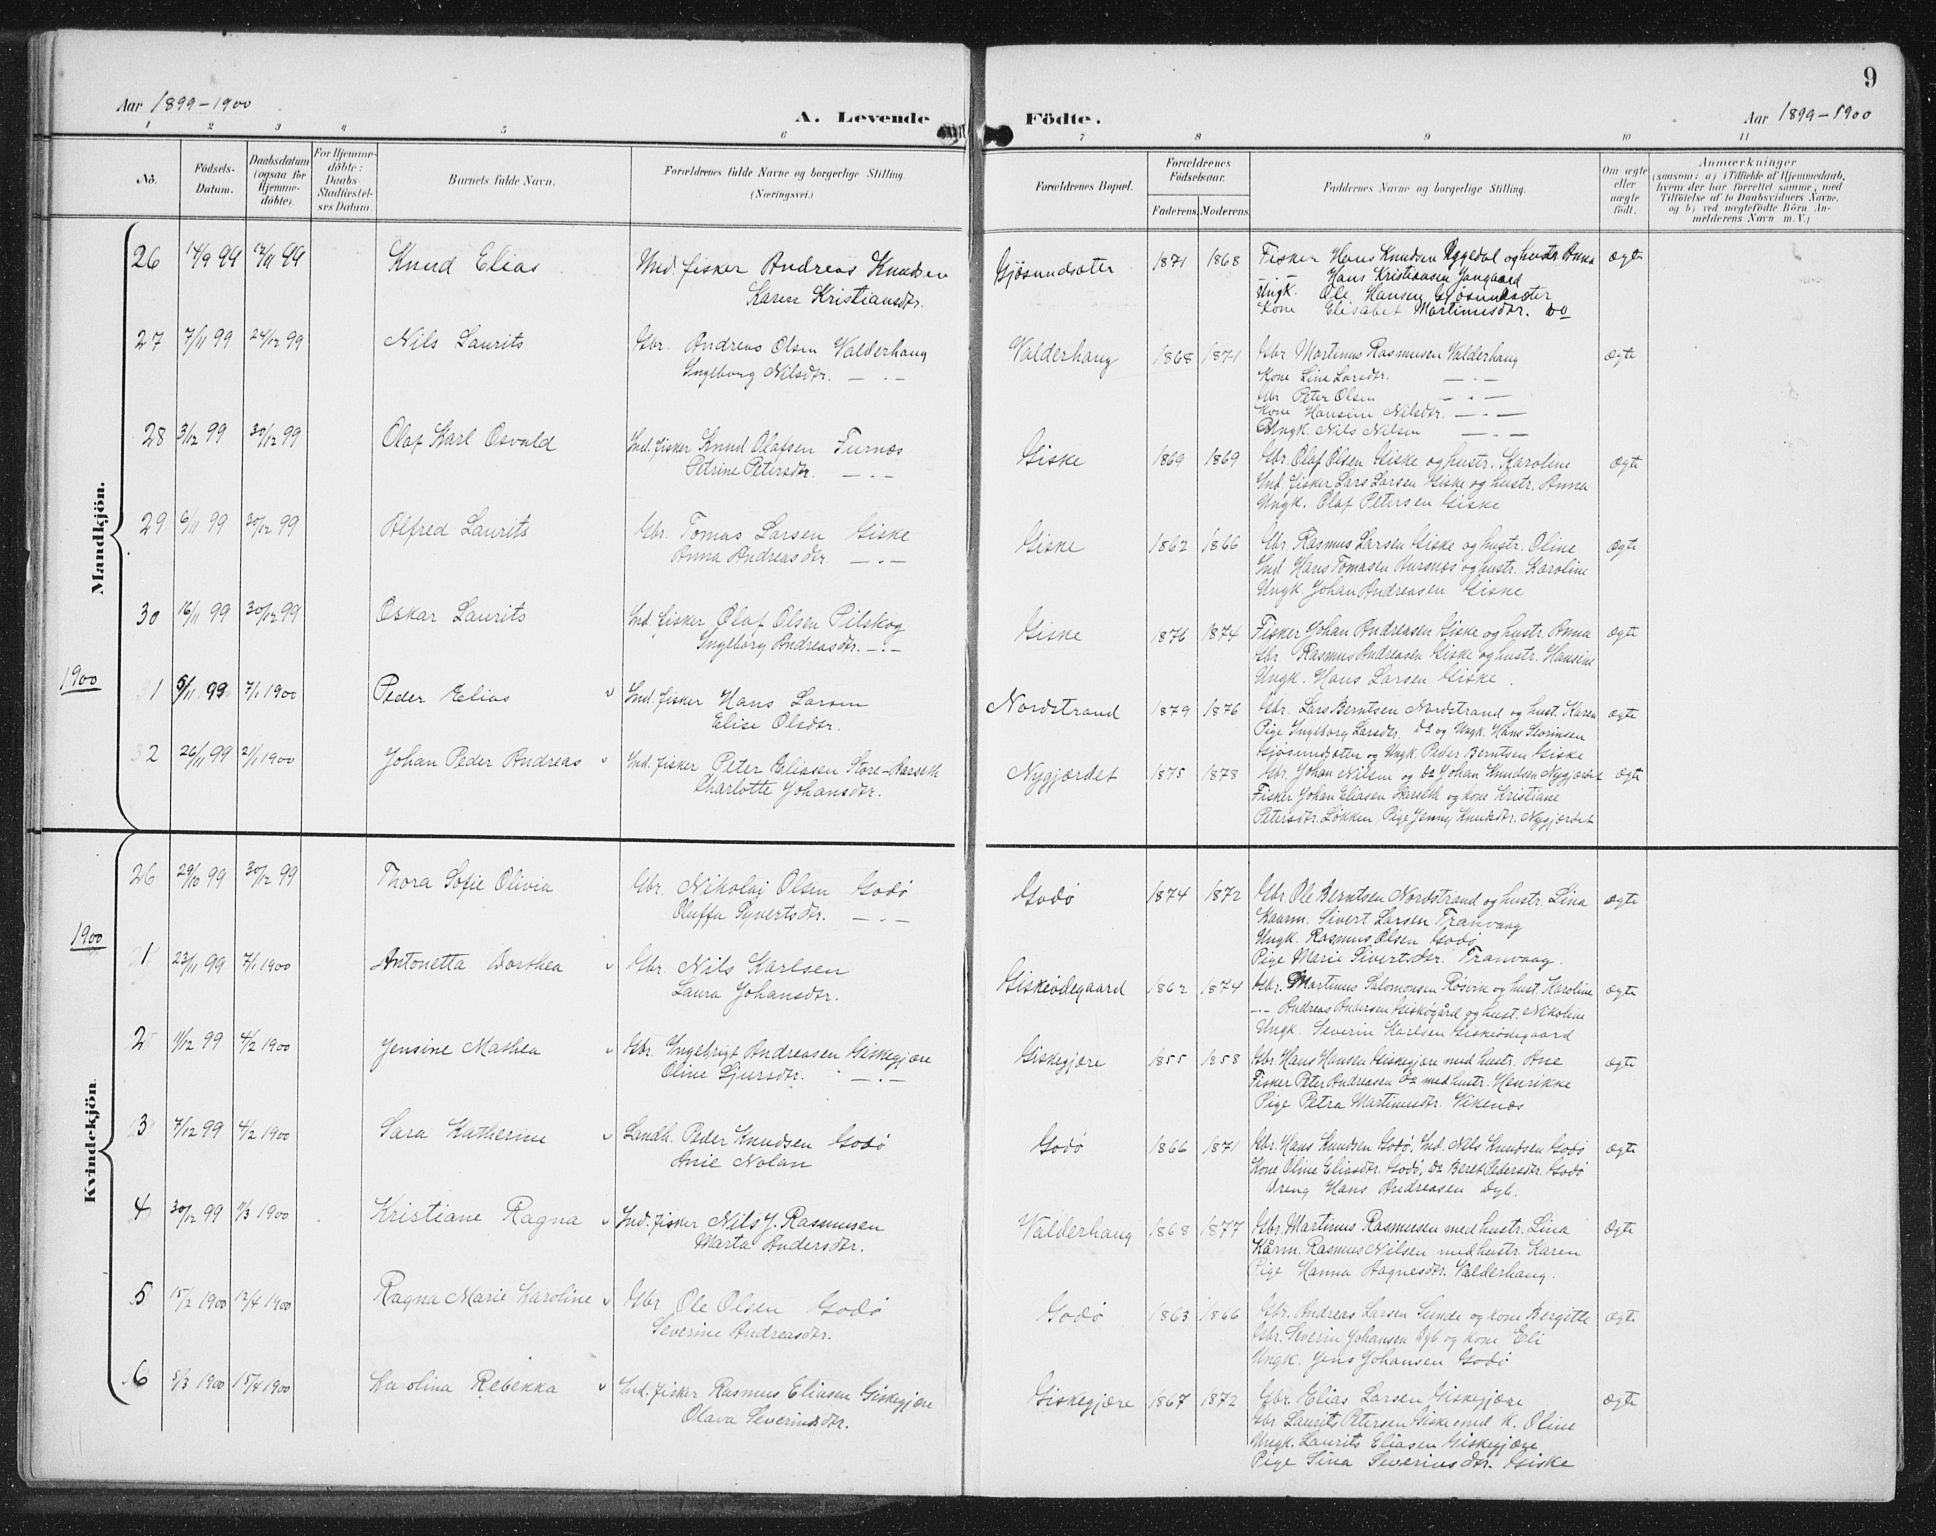 9
Aar 1899-1900
A. Levende Födte.
Aar 1899-1900
1 2 3 4 5 6 7 8 9 10 11
No.
Födsels-Datum.
Daabsdatum (ogsaa for Hjemme-döbte).
For Hjemme-döbte: Daabs-Stadfæstel-ses Datum.
Barnets fulde Navn.
Forældrenes fulde Navne og borgerlige Stilling
(Næringsvei.)
Forældrenes Bopæl.
Forældrenes Födselsaar.
Faderens. Moderens.
Faddernes Navne og borgerlige Stilling.
Om ægte eller uægte födt.
Anmærkninger
(saasom: a) i Tilfælde af Hjemmedaab,
hvem der har forrettet samme, med
Tilföielse af to Daabsvidners Navne,
og b) ved uægtefödte Börn An-
melderens Navn m. V.)
Mandkjön.
26 14/9 99 12/11 99 Knud Elias Ind. fisker Andreas Knudsen Gjøsundsæter 1871 1868 Fisker Hans Knudsen Rygedal og hustr Anna ægte
Karen Kristiansdtr. Hans Kristiansen
Ungk. Ole Hansen Gjøsundsæter
Kone Elisabet Martinusdtr. do
27 7/11 99 24/12 99 Nils Laurits Gbr. Andreas Olsen Valderhaug Valderhaug 1868 1871 Gbr Martinus Rasmusen Valderhaug ægte
Ingeborg Nilsdtr. — . — Kone Lina Larsdtr. — . —
Gbr Peter Olsen — . —
Kone Hansine Nilsdtr. — . —
Ungk. Nils Nilsen — . —
28 3/12 99 30/12 99 Olaf Karl Osvald Ind. fisker Knud Olafsen Furnæs Giske 1869 1869 Gbr. Olaf Olsen Giske og hustr. Karoline ægte
Petrine Petersdtr. — . — Ind. fisker Lars Larsen Giske og hustr. Anna
Ungk. Olaf Petersen Giske
29 6/11 99 30/12 99 Alfred Laurits Gbr. Tomas Larsen Giske Giske 1862 1866 Gbr. Rasmus Larsen Giske og hustr. Oline ægte
Anna Andreasdtr. — . — Ind Hans Tomasen Aursnæs og hustr. Karoline
Ungk. Johan Andreasen Giske
30 16/11 99 30/12 99 Oskar Laurits Ind. fisker Olaf Olsen Pilskog Giske 1876 1874 Fisker Johan Andreasen Giske og hustr. Anna ægte
Ingeborg Andreasdtr. — . — Gbr Rasmus Andreasen Giske og hustr. Hansine
Ungk. Hans Larsen Giske.
1900
1 5/11 99 7/1 1900 Peder Elias Ind. fisker Hans Larsen Nordstrand 1879 1876 Gbr. Lars Berntsen Nordstrand og hust. Karen ægte
Elise Olsdtr. Pige Ingeborg Larsdtr. do og Ungk. Hans
Gjøsundsæter og Ungk. Peder Berntsen Giske
2 26/11 99 21/1 1900 Johan Peder Andreas Ind. fisker Peter Eliasen Store-Harseth Nygjærdet 1875 1878 Gbr. Johan Nilsen og do Johan Knudsen Nygjærdet ægte
Charlotte Johansdtr. Fisker Johan Eliasen og kone Kristiane
Petersdtr. Løkken, Pige Jenny Knudsdtr. Nygjærdet
Kvindekjön
26 29/10 99 30/12 99 Thora Sofie Olivia Gbr. Nikolai Olsen Godø Godø 1874 1872 Gbr Ole Berntsen Nordstrand og hustr. Lina ægte
Oluffa Syvertsdtr. — . — Kaarm. Sivert Larsen Tranvaag
Ungk. Rasmus Olsen Godø
Pige Marie Sivertsdtr. Tranvaag.
1900
1 23/11 99 7/1 1900 Antonetta Dorthea Gbr. Nils Karlsen Giskeødegaard 1862 1874 Gbr. Martinus Salomonsen Røsvik og hust. Karoline ægte
Laura Johansdtr. — Andreas Andersen Giskøgård og hust. Nikoline
Ungk. Severin Karlsen Giskeødegaard
2 11/12 99 4/2 1900 Jensine Mathea Gbr. Ingebrigt Andreasen Giskegjære Giskegjære 1855 1858 Gbr. Hans Hansen Giskegjære med hustr. Ane ægte
Oline Sjursdtr. — . — Fisker Peter Andreasen do med hustr. Henrikke
Pige Petra Martinusdtr. Vikenæs
3 7/12 99 4/2 1900 Sara Katherine Landh. Peder Knudsen Godø Godø 1866 1871 Gbr. Hans Knudsen Godø, Ind. Nils Knudsen Godø ægte
Anie Nolan Kone Oline Eliasdtr. Godø, do Beret Pedersdtr. Godø
Dreng Hans Andreasen Dyb.
4 30/12 99 /3 1900 Kristiane Ragna Ind. fisker Nils J. Rasmusen Valderhaug 1868 1877 Gbr. Martinus Rasmusen med hustr. Lina ægte
Marta Andersdtr. Kårm. Rasmus Nilsen med hustr. Karen
Pige Hanna Aagnesdtr. Valderhaug.
5 15/2 1900 12/4 1900 Ragna Marie Karoline Gbr. Ole Olsen Godø Godø 1863 1866 Gbr. Andreas Larsen Sunde og kone Bergitte ægte
Severine Andreasdtr. Gbr. Severin Johansen Dyb og kone Eli
Ungk. Jens Johansen Godø
6 5/3 1900 15/4 1900 Karolina Rebekka Ind. fisker Rasmus Eliasen Giskegjære Giskegjære 1867 1872 Gbr. Elias Larsen Giskegjære ægte
Olava Severinsdtr. Gbr Laurits Petersen Giske med k. Oline
Ungk. Laurits Eliasen Giskegjære
Pige Sina Severinsdtr. Giske